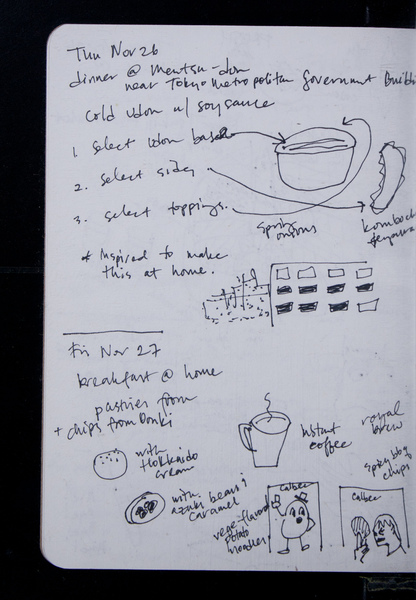 Thu Nov 26
dinner @ mentsu-dan
near Tokyo Metropolitan Government Buildi
cold udon w/ soy sauce
1. select udon base
2. select sides
3. select toppings.
spring onions
* inspired to make
this at home.
Fri Nov 27
breakfast @ home
pastries from
+ chips from Donki
with
Hokkaido
cream
instant
coffee
royal
brew
with
azuki beans &
caramel
chips
Calbee
Calbee
vege-flavored
potato
noodles